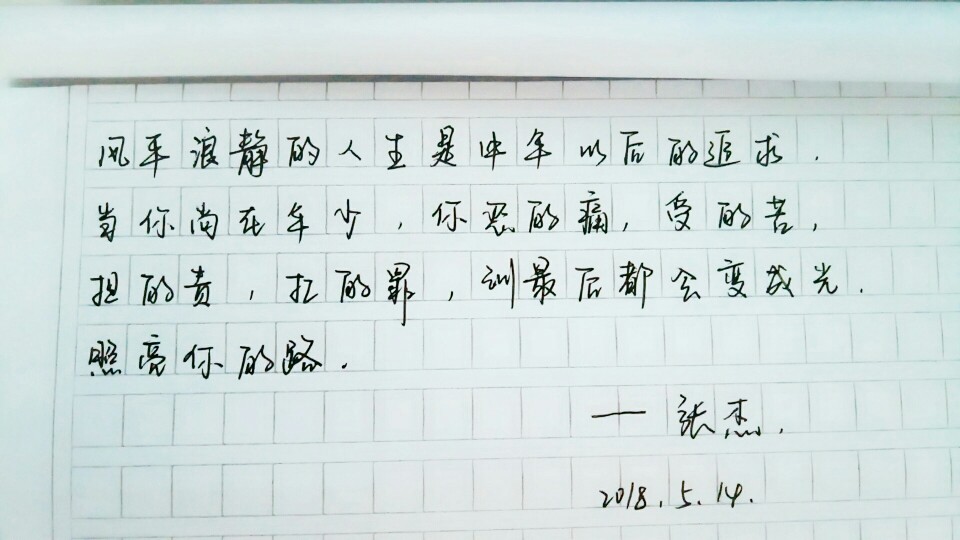 风平浪静的人生是中年以后的追求.
当你尚在年少,你忍的痛,受的苦,
担的责,扛的罪,到最后都会变成光.
照亮你的路.
——张杰.
2018.5.14.